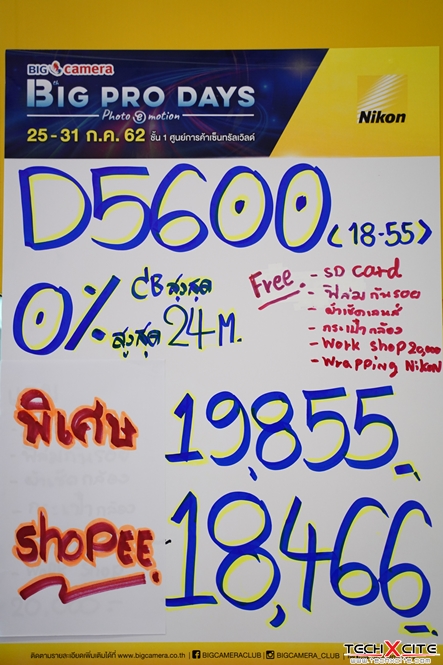 BIG camera
BIG PRO DAYS
Photo e motion
25-31 ก.ค. 62 ชั้น 1 ศูนย์การค้าเซ็นทรัลเวิลด์
Nikon
D5600 <18-55>
0% CB สูงสุด
สูงสุด 24 m.
Free
- SD card
- ฟิล์มกันรอย
- ผ้าเช็ดเลนส์
- กระเป๋ากล้อง
- Work shop 20,000
- Wrapping Nikon
พิเศษ 19,855.-
Shopee 18,466.-
ติดตามรายละเอียดเพิ่มเติมได้ที่ www.bigcamera.co.th | BIGCAMERACLUB | BIGCAMERA_CLUB |
TECHXCITE
www.techxcite.com